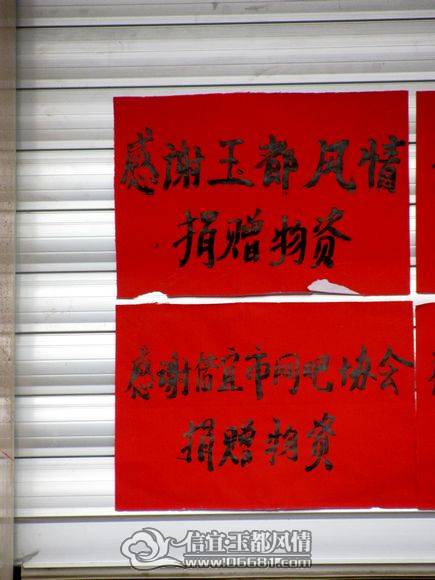 感谢玉都风情
捐赠物资
感谢信宜市网吧协会
捐赠物资
信宜·玉都风情
www.06681.com